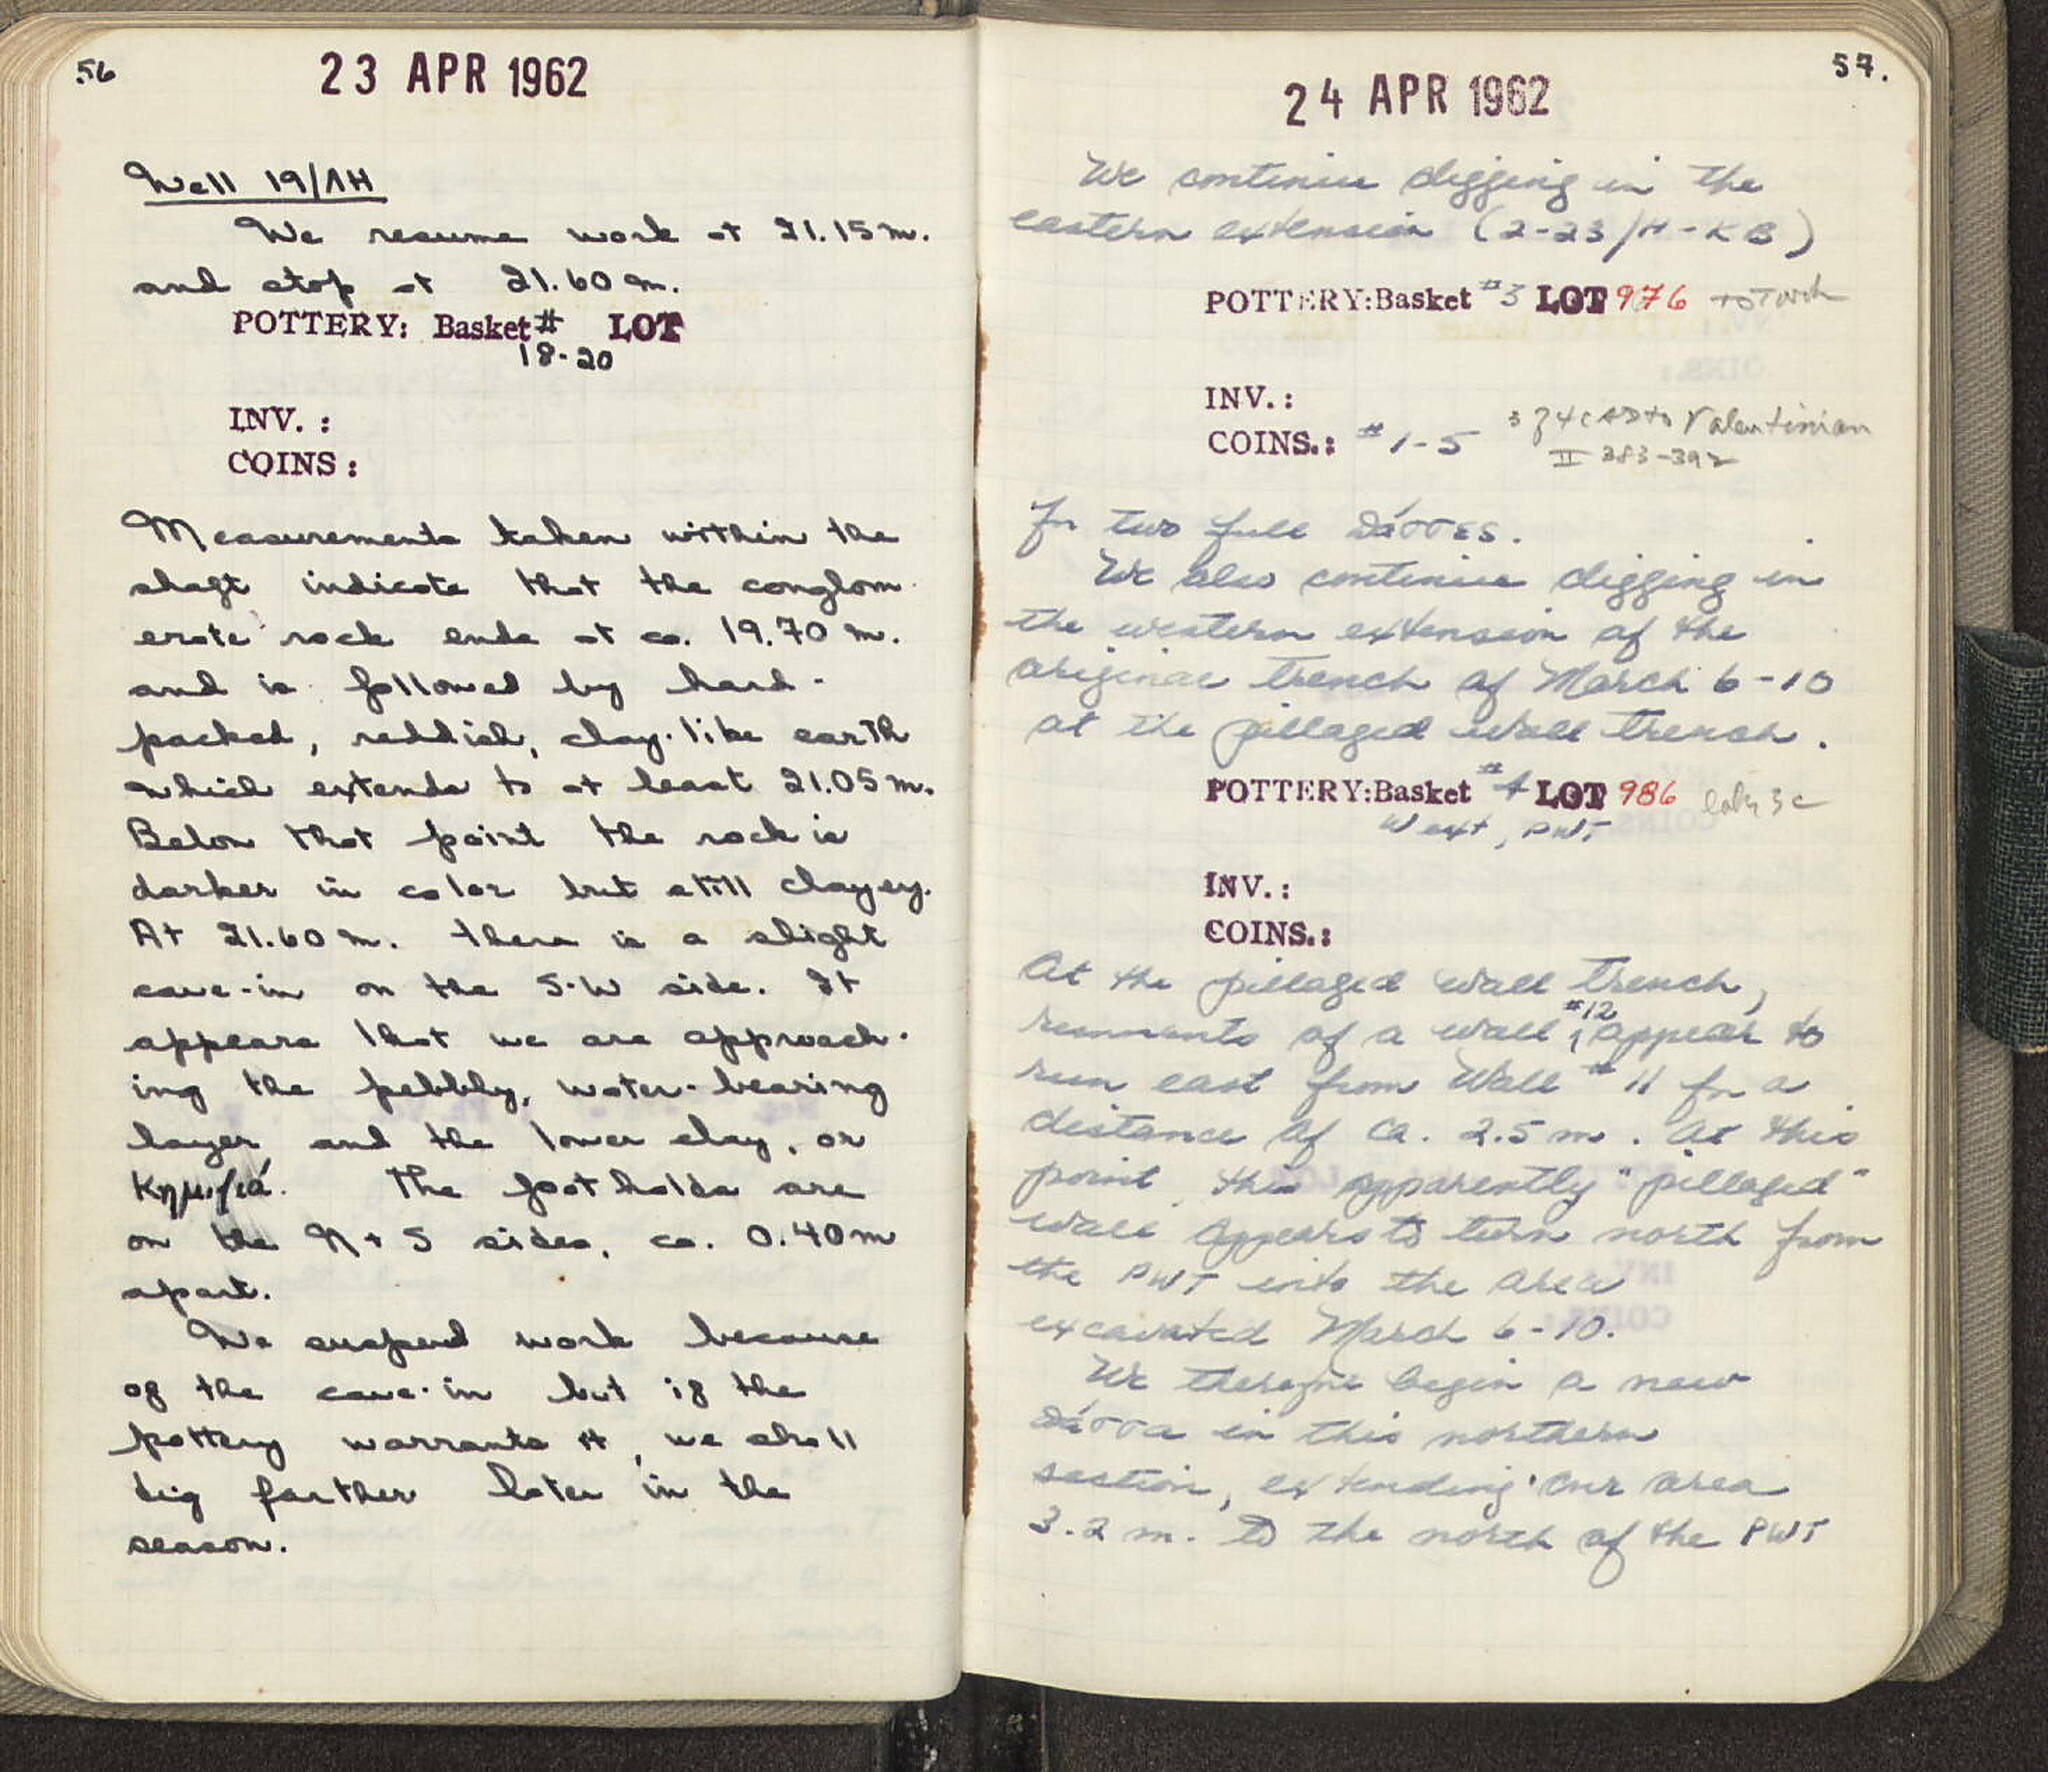 56
23 APR 1962
Well 19/ΛH
We resume work at 21.15 m.
and stop at 21.60 m.
POTTERY: Basket # LOT
18-20
INV.:
COINS:
Measurements taken within the
shaft indicate that the conglom-
erate rock ends at ca. 19.70 m.
and is followed by hard-
packed, reddish, clay-like earth
which extends to at least 21.05 m.
Below that point the rock is
darker in color but still clayey.
At 21.60 m. there is a slight
cave-in on the S-W side. It
appears that we are approach-
ing the pebbly, water-bearing
layer and the lower clay, or
Κημιλιά. The footholds are
on the N + S sides, ca. 0.40 m
apart.
We suspend work because
of the cave-in but if the
pottery warrants it, we shall
dig farther later in the
season.
57.
24 APR 1962
We continue digging in the
eastern extension (2-23/H-KB)
POTTERY: Basket #3 LOT 976
INV.:
COINS.: #1-5 3 of 4 c AD to Valentinian
II 383-392
for two full πάσσες.
We also continue digging in
the western extension of the
original trench of March 6-10
at the pillaged wall trench.
POTTERY: Basket #4 LOT 986 early 3 c
W ext, PWT
INV.:
COINS.:
At the pillaged wall trench,
remnants of a wall, #12, appear to
run east from Wall #11 for a
distance of ca. 2.5 m. At this
point this apparently "pillaged"
wall appears to turn north from
the PWT into the area
excavated March 6-10.
We therefore begin a new
πάσσα in this northern
section, extending our area
3.2 m. to the north of the PWT